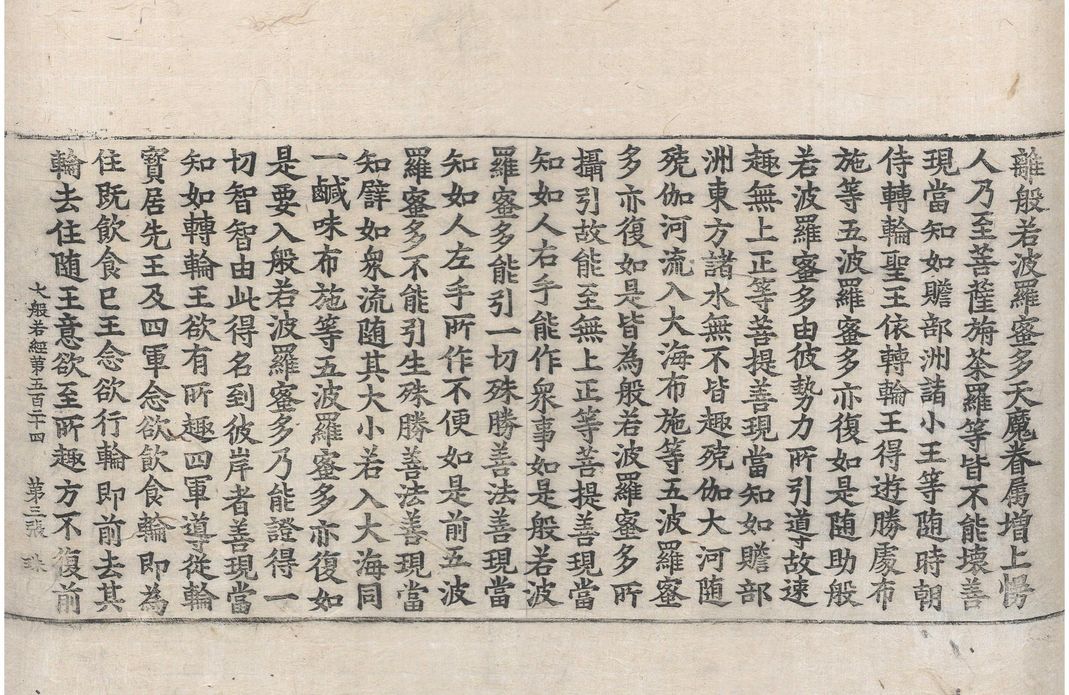 離般若波羅蜜多天魔眷属增上慢
人乃至菩薩旃荼羅等皆不能壞善
現當知如贍部洲諸小王等随時朝
侍轉輪聖王依轉輪王得遊勝處布
施等五波羅蜜多亦復如是随助般
若波羅蜜多由彼勢力所引導故速
趣無上正等菩提善現當知如贍部
洲東方諸水無不皆趣殑伽大河随
殑伽河流入大海布施等五波羅蜜
多亦復如是皆為般若波羅蜜多所
攝引故能至無上正等菩提善現當
知如人右手能作衆事如是般若波
羅蜜多能引一切殊勝善法善現當
知如人左手所作不便如是前五波
羅蜜多不能引生殊勝善法善現當
知譬如衆流随其大小若入大海同
一鹹味布施等五波羅蜜多亦復如
是要入般若波羅蜜多乃能證得一
切智智由此得名到彼岸者善現當
知如轉輪王欲有所趣四軍導從輪
寶居先王及四軍念欲飲食輪即為
住既飲食已王念欲行輪即前去其
輪去住随王意欲至所趣方不復前
大般若經第五百二十四 第三張 珠